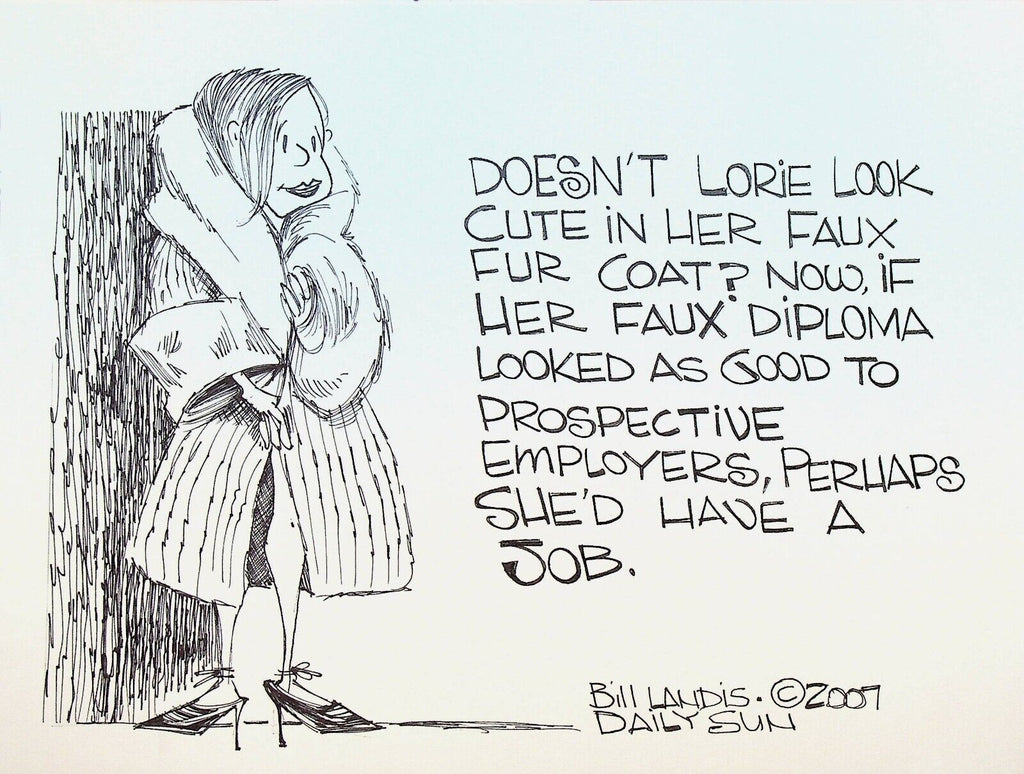 DOESN'T LORIE LOOK
CUTE IN HER FAUX
FUR COAT? NOW, IF
HER FAUX DIPLOMA
LOOKED AS GOOD TO
PROSPECTIVE
EMPLOYERS, PERHAPS
SHE'D HAVE A
JOB.
Bill LANDIS. ©2007
DAILY SUN